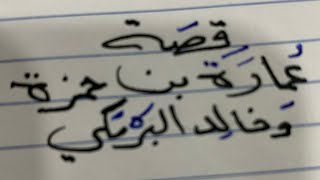 قصَة
عُمارَة بن حمزة
وَخالِد البَرمَكي